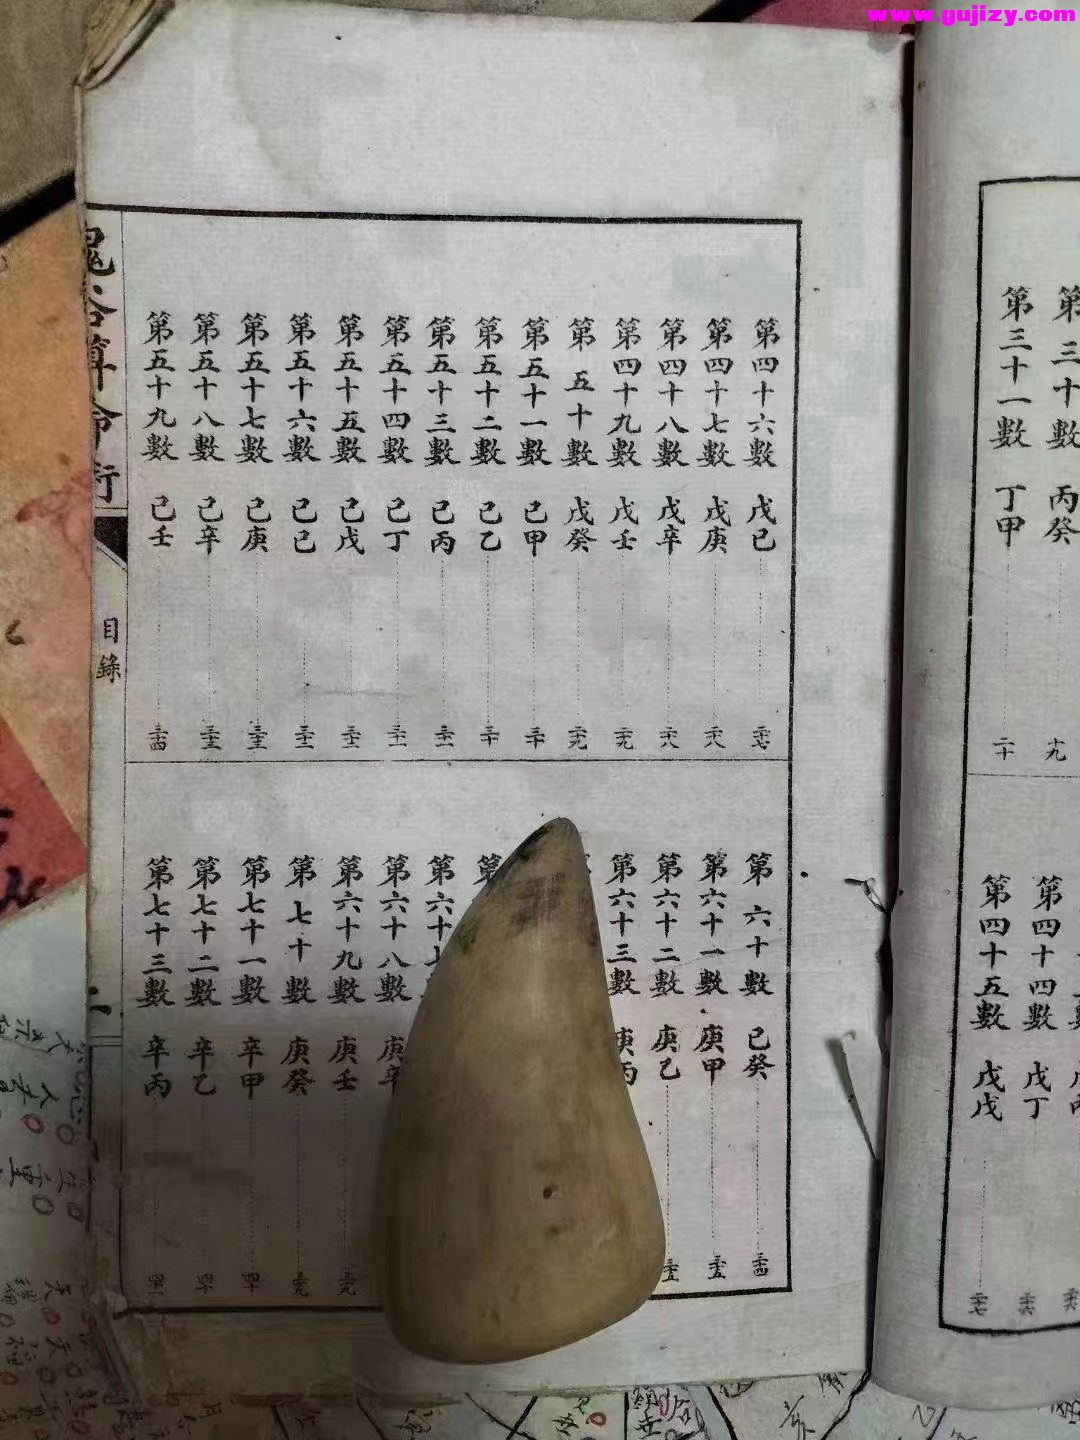 www.gujizy.com
第三十數 丙癸 十九
第三十一數 丁甲 二十
第四十四數 戊丁 二十六
第四十五數 戊戊 二十七
第四十六數 戊己 二十七
第四十七數 戊庚 二十八
第四十八數 戊辛 二十八
第四十九數 戊壬 二十九
第五十數 戊癸 二十九
第五十一數 己甲 三十
第五十二數 己乙 三十
第五十三數 己丙 三十一
第五十四數 己丁 三十一
第五十五數 己戊 三十二
第五十六數 己己 三十二
第五十七數 己庚 三十三
第五十八數 己辛 三十三
第五十九數 己壬 三十四
第六十數 己癸 三十四
第六十一數 庚甲 三十五
第六十二數 庚乙 三十五
第六十三數 庚丙
第
第六十
第六十八數 庚辛
第六十九數 庚壬 三十九
第七十數 庚癸 三十九
第七十一數 辛甲 四十
第七十二數 辛乙 四十
第七十三數 辛丙 四十一
鬼谷算命術
目錄
二